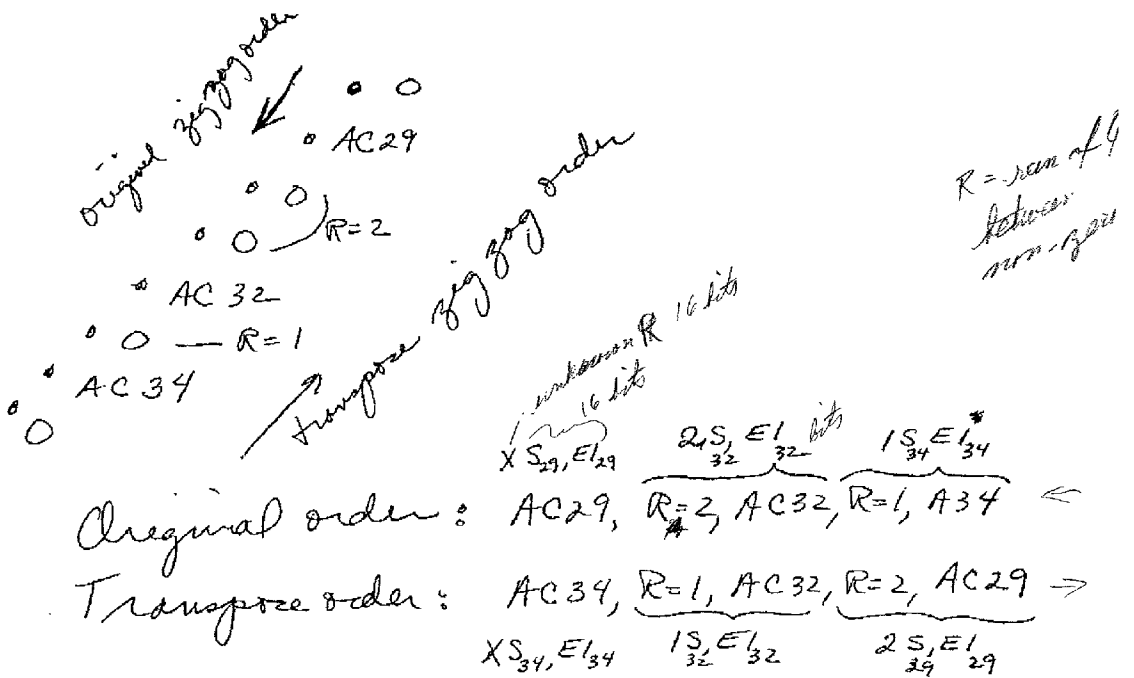 original zigzag order
AC29
R=2
AC 32
R=1
AC 34
transpose zigzag order
R = run of
between
non-zero
unknown R 16 bits
16 bits
X S29, E129
2, S32, E132 bits
1 S34 E134*
Original order: AC29, R=2, AC32, R=1, A34 ←
Transpose order: AC34, R=1, AC32, R=2, AC29 →
X S34, E134
1 S32, E132
2 S29, E129